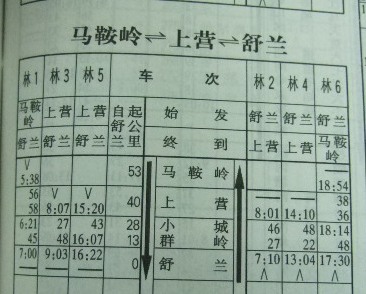 马鞍岭⇌上营⇌舒兰
林1 林3 林5 车次 林2 林4 林6
马鞍岭 上营 上营 自起舒公兰里 始发 舒兰 舒兰 舒兰
舒兰 舒兰 舒兰 终到 上营 上营 马鞍岭
∨ 5:38 53 马鞍岭 18:54
56 ∨ ∨ 38
58 8:07 15:20 40 上营 8:01 14:10 36
6:21 27 43 28 小城 46 48 18:14
45 48 16:07 13 群岭 27 22 48
7:00 9:03 16:22 0 舒兰 7:10 13:04 17:30
∧ ∧ ∧